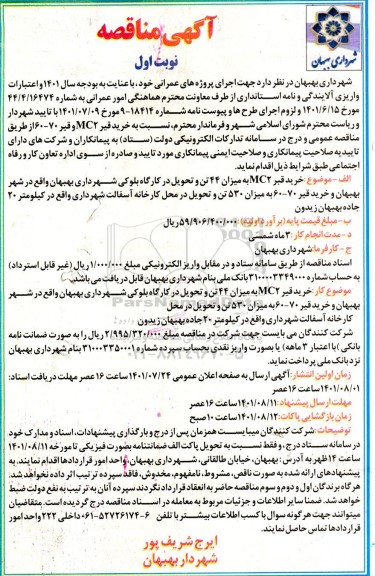 آگهی مناقصه
نوبت اول
شهرداری بهبهان
شهرداری بهبهان در نظر دارد جهت اجرای پروژه های عمرانی خود، با عنایت به بودجه سال ۱۴۰۱ و اعتبارات
واریزی آلایندگی و نامه استانداری از طرف معاونت محترم هماهنگی امور عمرانی به شماره ۴۴/۴/۱۶۴۷۴
مورخ ۱۴۰۱/۶/۱۵ و لزوم اجرای طرح ها و پیوست نامه شماره ۹-۱۸۴۱۴ مورخ ۱۴۰۱/۰۷/۰۹ با تایید شهردار
و ریاست محترم شورای اسلامی شهر و فرماندار محترم، نسبت به خرید قیر MC۲ و قیر ۷۰-۶۰ از طریق
مناقصه عمومی و درج در سامانه تدارکات الکترونیکی دولت (ستاد) به پیمانکاران و شرکت های دارای
تایید صلاحیت پیمانکاری و صلاحیت ایمنی پیمانکاری مورد تایید و صادره از سوی اداره تعاون کار و رفاه
اجتماعی طبق شرایط ذیل اقدام نماید.
الف - موضوع: خرید قیر MC۲ به میزان ۴۴ تن و تحویل در کارگاه بلوکی شهرداری بهبهان واقع در شهر
بهبهان و خرید قیر ۷۰-۶۰ به میزان ۵۳۰ تن و تحویل در محل کارخانه آسفالت شهرداری واقع در کیلومتر ۲۰
جاده بهبهان زیدون
ب- مبلغ قیمت پایه (برآورد اولیه): ۵۹/۹۰۶/۴۰۰/۰۰۰ ریال
د- مدت انجام کار: ۳ ماه شمسی
ج- کارفرما: شهرداری بهبهان
اسناد مناقصه از طریق سامانه ستاد و در مقابل واریز الکترونیکی مبلغ ۱/۰۰۰/۰۰۰ ریال (غیر قابل استرداد)
به حساب شماره ۳۱۰۰۰۰۳۳۴۹۰۰۰ بانک ملی بنام شهرداری بهبهان قابل دریافت می باشد.
موضوع کار: خرید قیر MC۲ به میزان ۴۴ تن و تحویل در کارگاه بلوکی شهرداری بهبهان واقع در شهر
بهبهان و خرید قیر ۷۰-۶۰ به میزان ۵۳۰ تن و تحویل در محل
کارخانه آسفالت شهرداری واقع در کیلومتر ۲۰ جاده بهبهان زیدون
شرکت کنندگان می بایست جهت شرکت در مناقصه مبلغ ۲/۹۹۵/۳۲۰/۰۰۰ ریال را به صورت ضمانت نامه
بانکی (با اعتبار ۳ ماهه) یا بصورت واریز نقدی بحساب سپرده شماره ۳۱۰۰۰۰۳۳۵۰۰۰۱ بنام شهرداری بهبهان
نزد بانک ملی پرداخت نماید.
زمان اولین انتشار: آگهی ارسال به صفحه اعلان عمومی ۱۴۰۱/۰۷/۲۴ ساعت ۱۶ عصر مهلت دریافت اسناد:
۱۴۰۱/۰۸/۰۱ ساعت ۱۶ عصر
مهلت ارسال پیشنهاد: ۱۴۰۱/۰۸/۱۱ ساعت ۱۶ عصر
زمان بازگشایی پاکات: ۱۴۰۱/۰۸/۱۲ ساعت ۱۰ صبح
توضیحات: شرکت کنندگان میبایست همزمان پس از درج و بارگذاری پیشنهادات، اسناد و مدارک خود
در سامانه ستاد درج، و فقط نسبت به تحویل پاکت الف ضمانتنامه بصورت فیزیکی تا مورخه ۱۴۰۱/۰۸/۱۱
ساعت ۱۴ ظهر به آدرس: بهبهان، خیابان طالقانی، شهرداری بهبهان، واحد امور قراردادها اقدام نمایند. به
پیشنهادهای ارائه شده به صورت ناقص، مشروط، نامفهوم، مخدوش، فاقد سپرده ترتیب اثر داده نخواهد شد.
هرگاه برندگان اول و دوم و سوم مناقصه حاضر به انعقاد قرارداد نگردند سپرده آنان به ترتیب به نفع دولت ضبط
خواهد شد. ضمنا سایر اطلاعات و جزئیات مربوط به معامله در اسناد مناقصه درج گردیده است. متقاضیان
میتوانند جهت هرگونه سوال یا کسب اطلاعات بیشتر با تلفن ۶-۰۶۱-۵۲۷۲۶۱۷۴ داخلی ۲۲۲ واحد امور
قراردادها تماس حاصل نمایند.
ایرج شریف پور
شهردار بهبهان